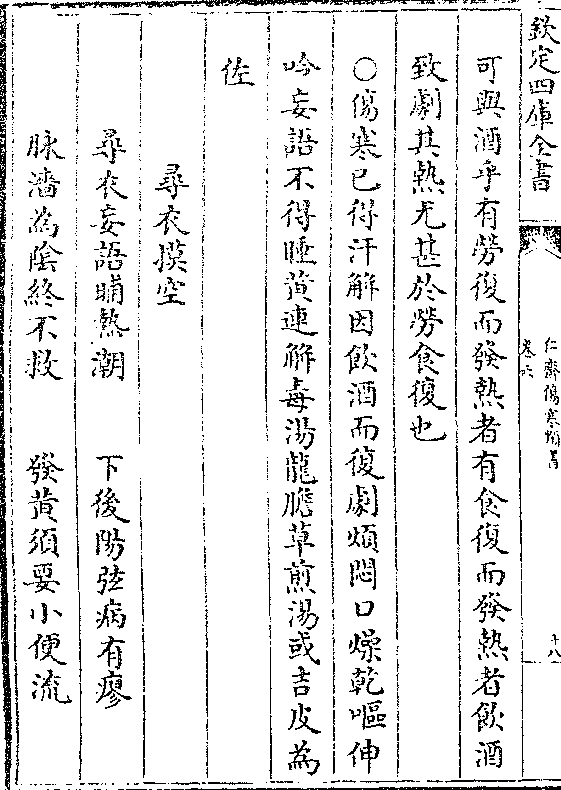 欽定四庫全書
仁齋傷寒類書
卷六
十八
可與酒乎有勞復而發熱者有食復而發熱者飲酒
致劇其熱尤甚於勞食復也
○傷寒已得汗解因飲酒而復劇煩悶口燥乾嘔伸
吟妄語不得睡黄連解毒湯龍膽草煎湯或吉皮為
佐
尋衣摸空
尋衣妄語晡熱潮　下後陽弦病有瘳
脉濇為隂終不救　發黄須要小便流